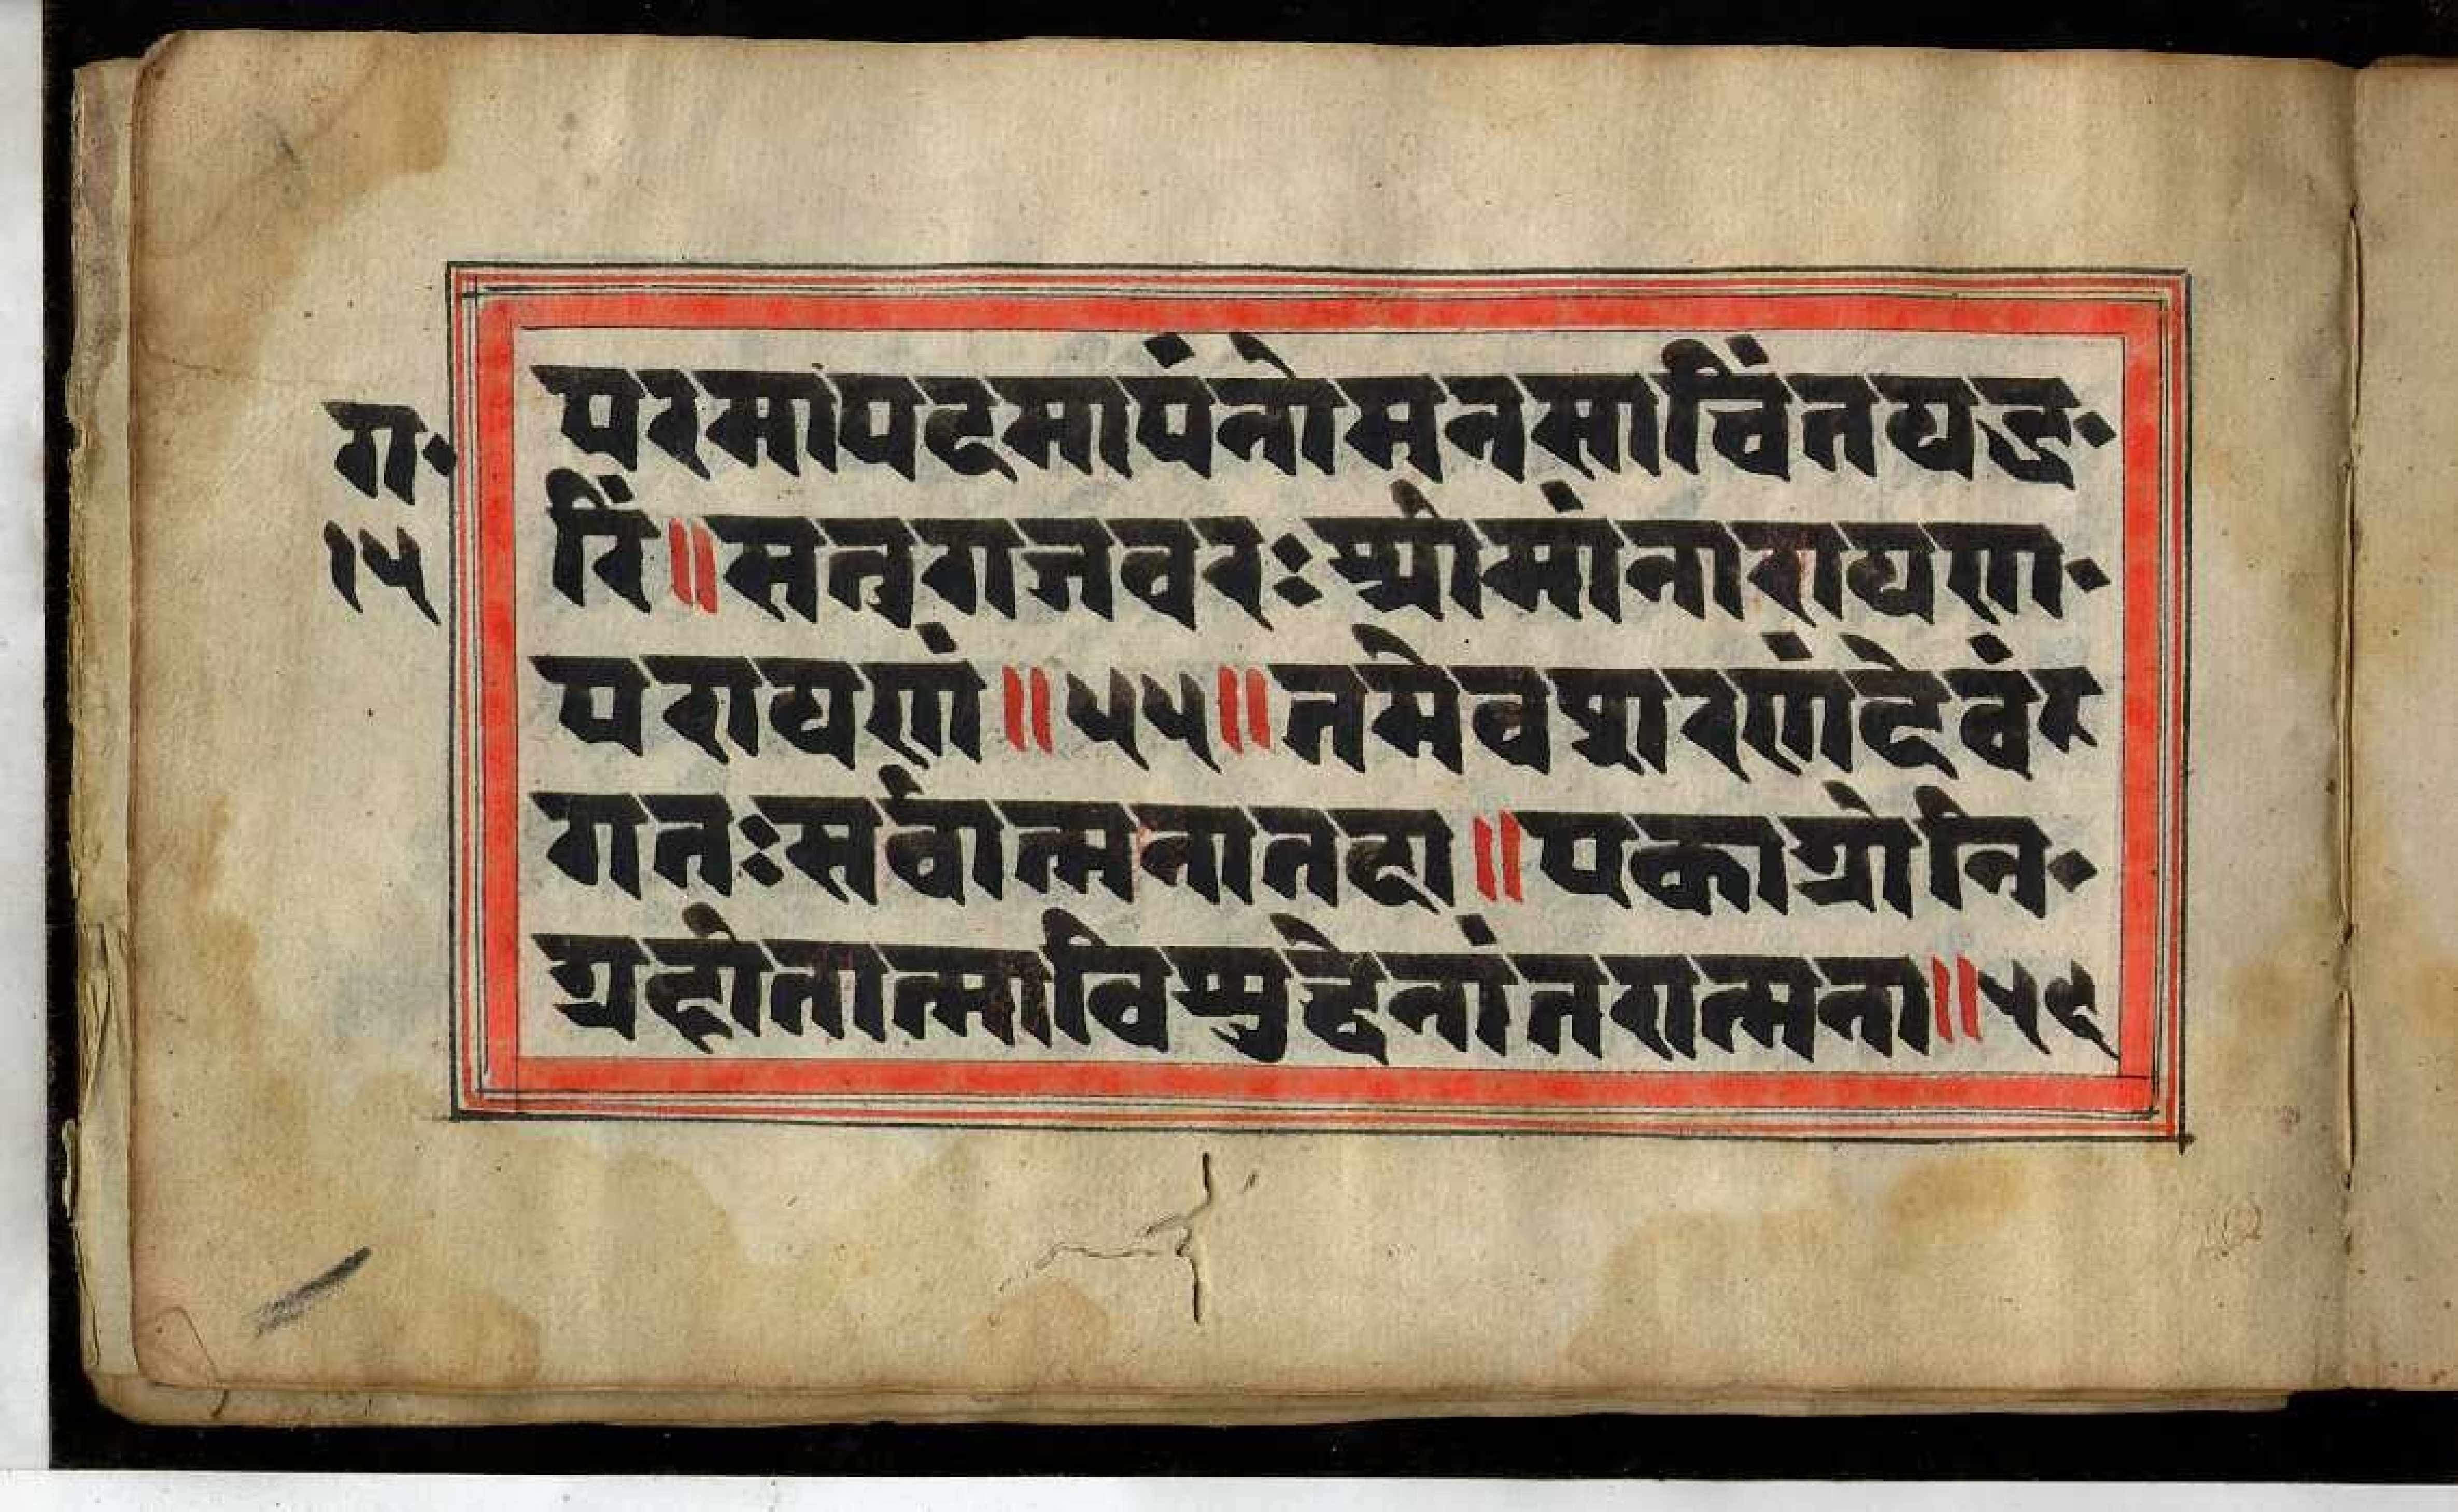 परमापदमापंनोमनसाचिंतयद्ध·
ग·
रिं॥सतुगजवरःश्रीमांनारायण·
१५
परायणं॥५५॥तमेवशरणंदेवंर
गतःसर्वात्मनातदा॥एकाग्रोनि·
ग्रहीतात्माविशुद्देनांतरात्मना॥५६